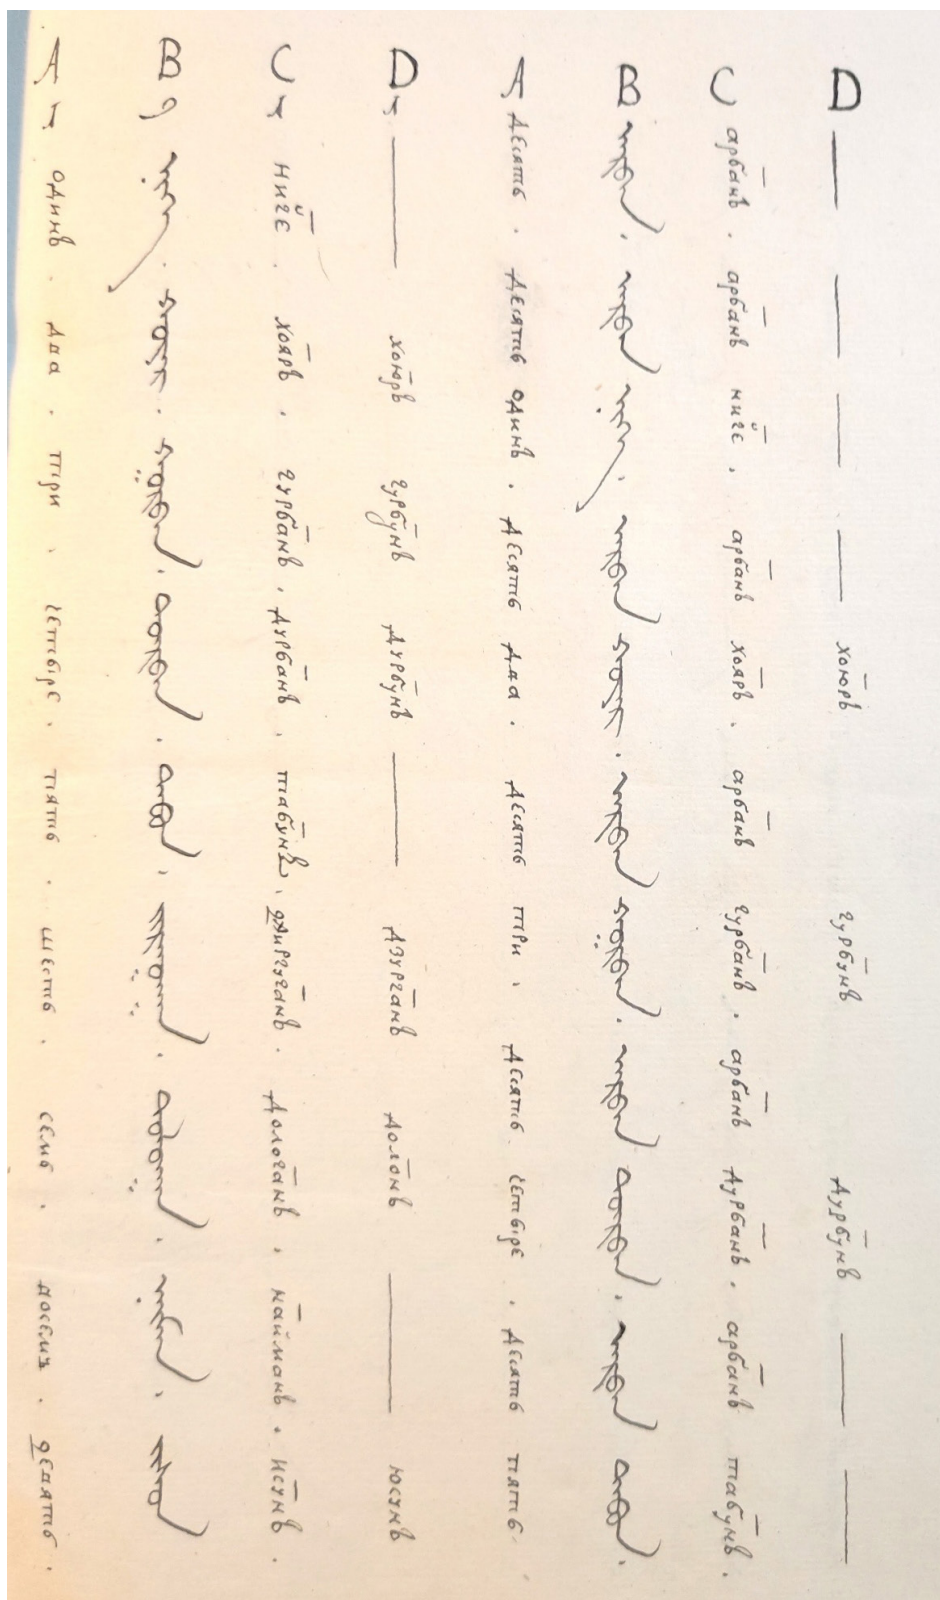 A. одинъ . два . три . четыре . пять . шесть . семь . восемь . девять .
B. ᠨᠢᠭᠡ ᠂ ᠬᠣᠶᠠᠷ ᠂ ᠭᠤᠷᠪᠠᠨ ᠂ ᠳᠥᠷᠪᠡᠨ ᠂ ᠲᠠᠪᠤᠨ ᠂ ᠵᠢᠷᠭᠤᠭᠠᠨ ᠂ ᠳᠣᠯᠤᠭᠠᠨ ᠂ ᠨᠠᠢᠮᠠᠨ ᠂ ᠶᠢᠰᠦᠨ
C. нигѐ . хояръ . гурбанъ . дурбанъ . табунъ . джиргуганъ . дологанъ . найманъ . исунъ .
D. — хоюръ гурбунъ дурбунъ — дзурганъ долонъ — юсунъ
A десять . десять одинъ . десять два . десять три . десять четыре . десять пять .
B ᠠᠷᠪᠠᠨ ᠂ ᠠᠷᠪᠠᠨ ᠨᠢᠭᠡ ᠂ ᠠᠷᠪᠠᠨ ᠬᠣᠶᠠᠷ ᠂ ᠠᠷᠪᠠᠨ ᠭᠤᠷᠪᠠᠨ ᠂ ᠠᠷᠪᠠᠨ ᠳᠥᠷᠪᠡᠨ ᠂ ᠠᠷᠪᠠᠨ ᠲᠠᠪᠤᠨ ᠂
C арбанъ . арбанъ нигѐ . арбанъ хояръ . арбанъ гурбанъ . арбанъ дурбанъ . арбанъ табунъ .
D — — — — хоюръ гурбунъ дурбунъ — —